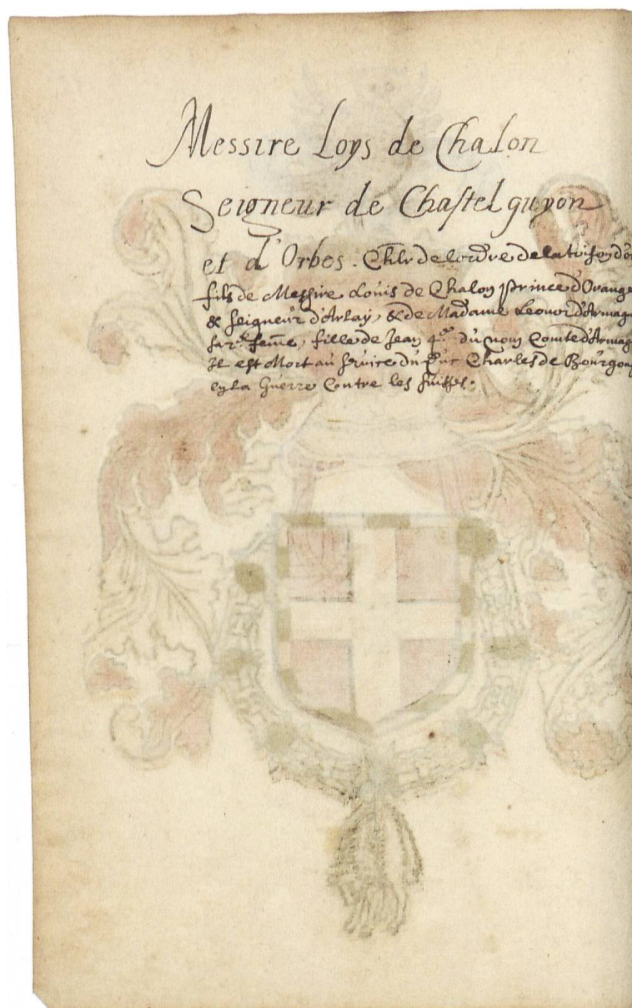 Messire Loys de Chalon
Seigneur de Chastelguyon
et d'Orbes. Chlr de lordre de la toison d'o
fils de Messire Louis de Chalon prince d'Orange
& seigneur d'Arlay, & de Madame Leonor d'Armag
sa femme, fille de Jean 4e du nom Comte d'Armag
Il est Mort au service du Duc Charles de Bourgon
en la Guerre Contre les suisses.